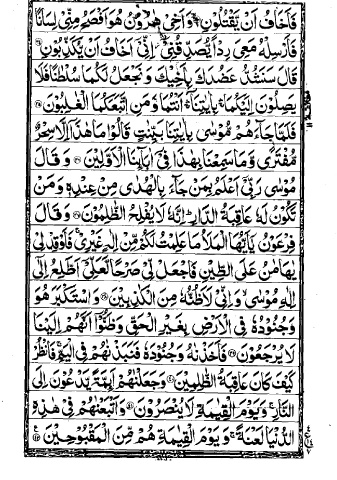 فَاَخَافُ اَنْ يَّقْتُلُوْنِ ۝ وَاَخِيْ هٰرُوْنُ هُوَ اَفْصَحُ مِنِّيْ لِسَانًا
فَاَرْسِلْهُ مَعِيَ رِدْاً يُّصَدِّقُنِيْٓ ۡ اِنِّيْٓ اَخَافُ اَنْ يُّكَذِّبُوْنِ ۝
قَالَ سَنَشُدُّ عَضُدَكَ بِاَخِيْكَ وَنَجْعَلُ لَكُمَا سُلْطٰنًا فَلَا
يَصِلُوْنَ اِلَيْكُمَا ۚ بِاٰيٰتِنَآ ۚ اَنْتُمَا وَمَنِ اتَّبَعَكُمَا الْغٰلِبُوْنَ ۝
فَلَمَّا جَآءَهُمْ مُّوْسٰى بِاٰيٰتِنَا بَيِّنٰتٍ قَالُوْا مَا هٰذَآ اِلَّا سِحْرٌ
مُّفْتَرًى وَّمَا سَمِعْنَا بِهٰذَا فِيْٓ اٰبَآئِنَا الْاَوَّلِيْنَ ۝ وَقَالَ
مُوْسٰى رَبِّيْٓ اَعْلَمُ بِمَنْ جَآءَ بِالْهُدٰى مِنْ عِنْدِهٖ وَمَنْ
تَكُوْنُ لَهٗ عَاقِبَةُ الدَّارِ ۭ اِنَّهٗ لَا يُفْلِحُ الظّٰلِمُوْنَ ۝ وَقَالَ
فِرْعَوْنُ يٰٓاَيُّهَا الْمَلَاُ مَا عَلِمْتُ لَكُمْ مِّنْ اِلٰهٍ غَيْرِيْ ۚ فَاَوْقِدْ لِيْ
يٰهَامٰنُ عَلَى الطِّيْنِ فَاجْعَلْ لِّيْ صَرْحًا لَّعَلِّيْٓ اَطَّلِعُ اِلٰٓى
اِلٰهِ مُوْسٰى ۙ وَاِنِّيْ لَاَظُنُّهٗ مِنَ الْكٰذِبِيْنَ ۝ وَاسْتَكْبَرَ هُوَ
وَجُنُوْدُهٗ فِي الْاَرْضِ بِغَيْرِ الْحَقِّ وَظَنُّوْٓا اَنَّهُمْ اِلَيْنَا
لَا يُرْجَعُوْنَ ۝ فَاَخَذْنٰهُ وَجُنُوْدَهٗ فَنَبَذْنٰهُمْ فِي الْيَمِّ ۚ فَانْظُرْ
كَيْفَ كَانَ عَاقِبَةُ الظّٰلِمِيْنَ ۝ وَجَعَلْنٰهُمْ اَئِمَّةً يَّدْعُوْنَ اِلَى
النَّارِ ۚ وَيَوْمَ الْقِيٰمَةِ لَا يُنْصَرُوْنَ ۝ وَاَتْبَعْنٰهُمْ فِيْ هٰذِهِ
الدُّنْيَا لَعْنَةً ۚ وَيَوْمَ الْقِيٰمَةِ هُمْ مِّنَ الْمَقْبُوْحِيْنَ ۝